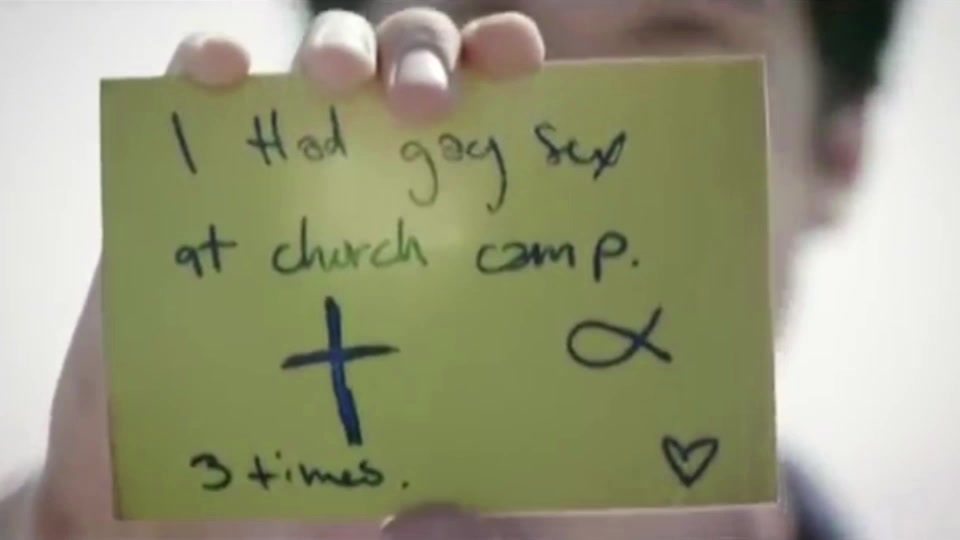 I Had gay sex
at church camp.
3 times.